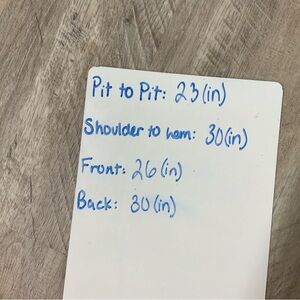 Pit to Pit: 23(in)
Shoulder to hem: 30(in)
Front: 26(in)
Back: 30(in)